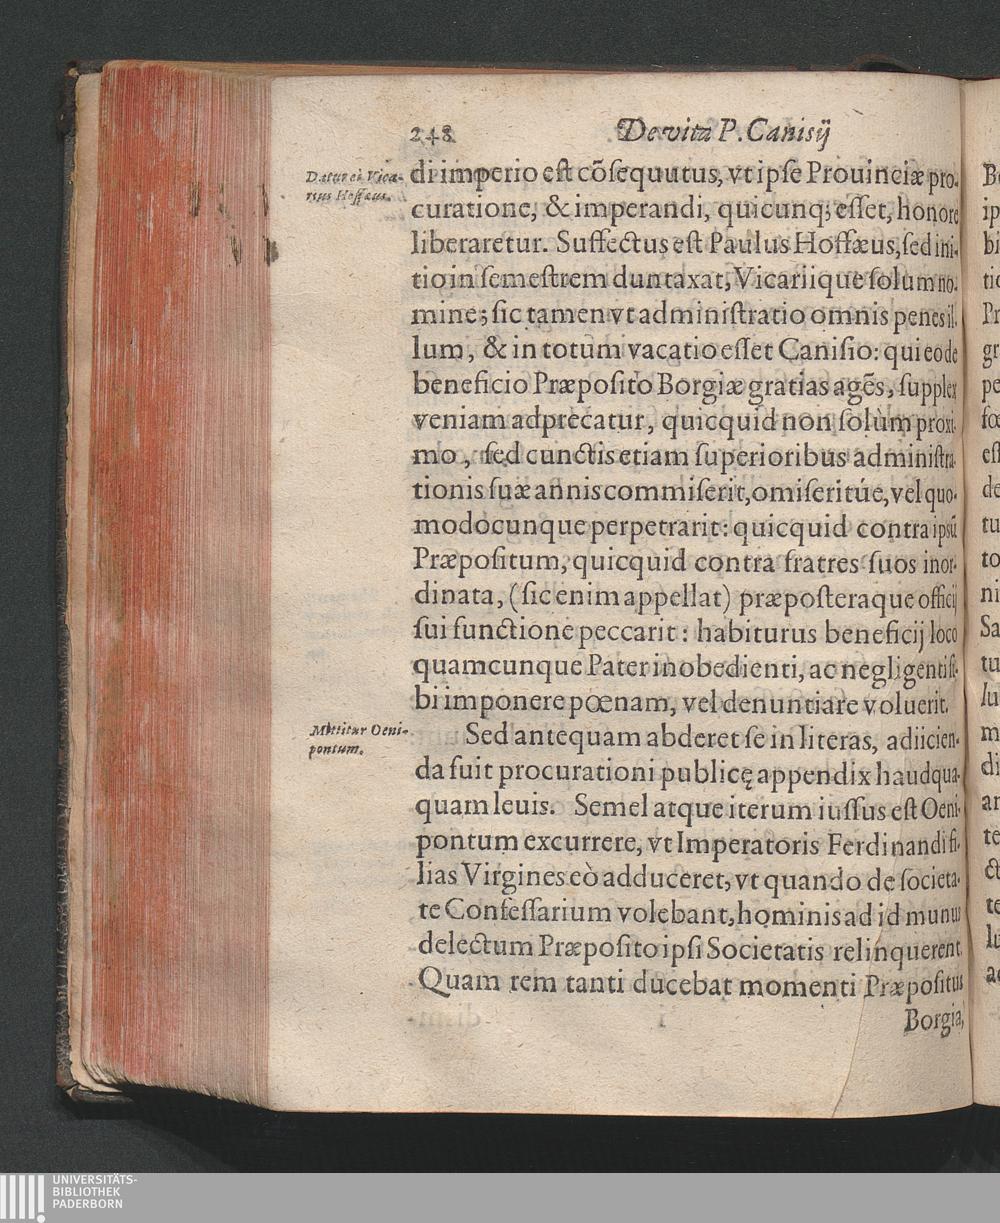 248 De vita P. Canisij
Datur ei Vica-
rius Hoffæus.
di imperio est cõsequutus, vt ipse Prouinciæ pro-
curatione, & imperandi, quicunq; esset, honore
liberaretur. Suffectus est Paulus Hoffæus, sed ini-
tio in semestrem duntaxat, Vicariique solum no-
mine; sic tamen vt administratio omnis penes il-
lum, & in totum vacatio esset Canisio: qui eo de
beneficio Præposito Borgiæ gratias agẽs, supplex
veniam adprecatur, quicquid non solùm proxi-
mo, sed cunctis etiam superioribus administra-
tionis suæ annis commiserit, omiseritúe, vel quo-
modocunque perpetrarit: quicquid contra ipsũ
Præpositum, quicquid contra fratres suos inor-
dinata, (sic enim appellat) præposteraque officij
sui functione peccarit: habiturus beneficij loco
quamcunque Pater inobedienti, ac negligenti si-
bi imponere pœnam, vel denuntiare voluerit.
Mittitur Oeni-
pontum.
Sed antequam abderet se in literas, adiicien-
da fuit procurationi publicę appendix haudqua-
quam leuis. Semel atque iterum iussus est Oeni-
pontum excurrere, vt Imperatoris Ferdinandi fi-
lias Virgines eò adduceret, vt quando de societa-
te Confessarium volebant, hominis ad id munus
delectum Præposito ipsi Societatis relinquerent.
Quam rem tanti ducebat momenti Præpositus
Borgia,
UNIVERSITÄTS-
BIBLIOTHEK
PADERBORN